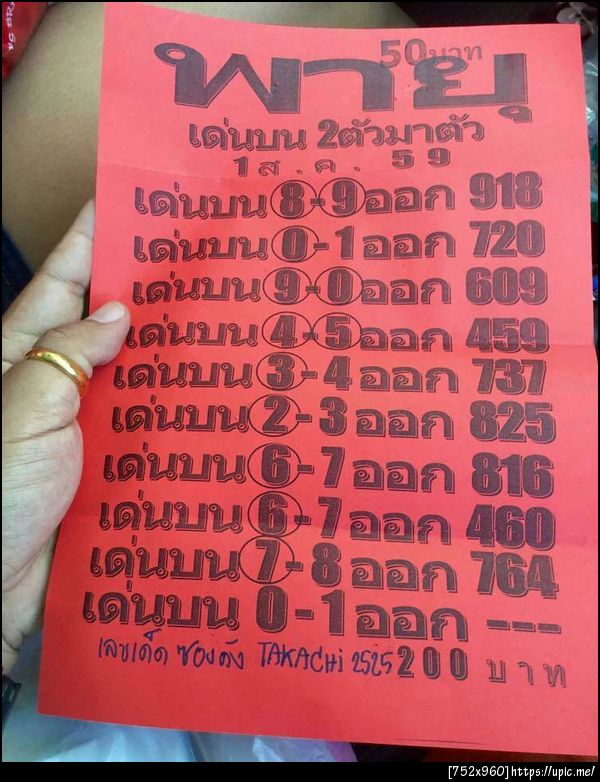 50บาท
พายุ
เด่นบน 2ตัวมาตัว
1ส.ค. 59
เด่นบน 8-9ออก 918
เด่นบน 0-1ออก 720
เด่นบน 9-0ออก 609
เด่นบน 4-5ออก 459
เด่นบน 3-4ออก 737
เด่นบน 2-3ออก 825
เด่นบน 6-7ออก 816
เด่นบน 6-7ออก 460
เด่นบน 7-8ออก 764
เด่นบน 0-1ออก ---
เลขเด็ด ซองดัง TAKACHi 2525 200 บาท
[752x960]https://upic.me/